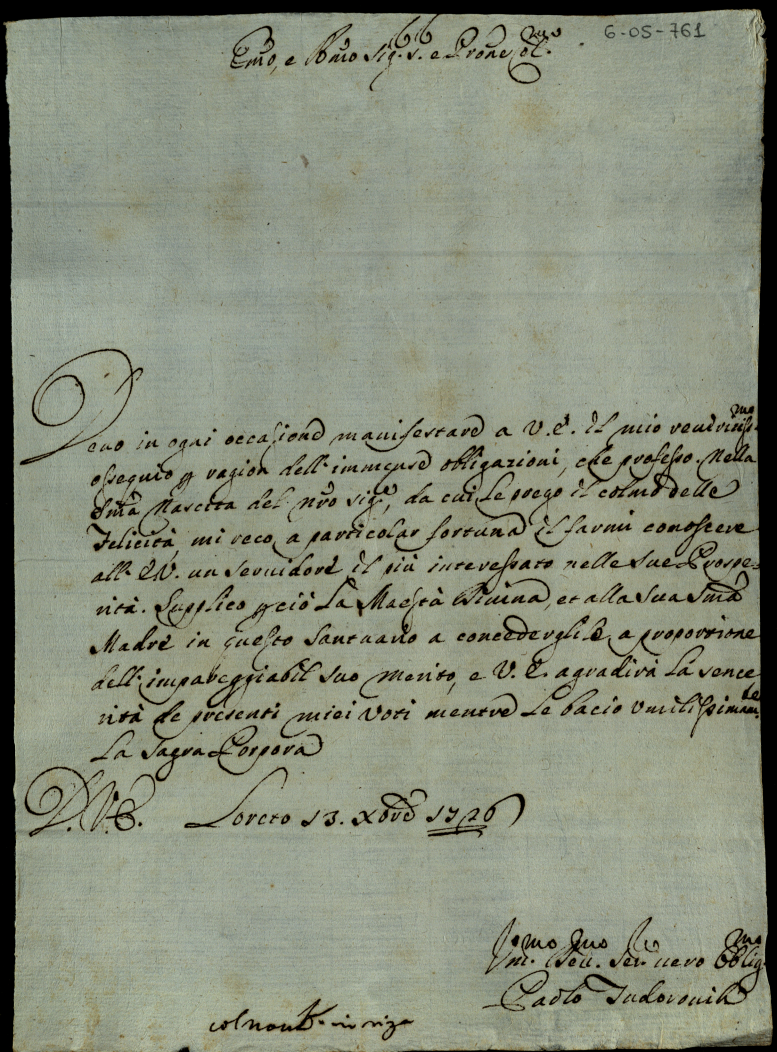 6-05-761
Emo, e Rmo Sig.r e Prone Col.mo
Devo in ogni occasione manifestare a V.E. il mio reveritiss.mo
ossequio p ragion dell'immense obligazioni, che professo. Nella
Sma Nascita del nro Sig.e, da cui Le prego il colmo delle
Felicità, mi reco a particolar fortuna il farmi conoscere
all'E.V. un servidore il più interessato nelle sue Prospe=
rità. Supplico p ciò La Maestà Divina, et alla sua Sma
Madre in questo Santuario a concederglile a proportione
dell'impareggiabil suo merito, e V.E. agradirà La sence
rità de presenti miei Voti mentre Le bacio umilissimam.te
La Sagra Porpora
D.V.E. Loreto 13. Xbre 1726
Um.mo Dev.mo Ser. vero Obblig.mo
Paolo Tudorovih